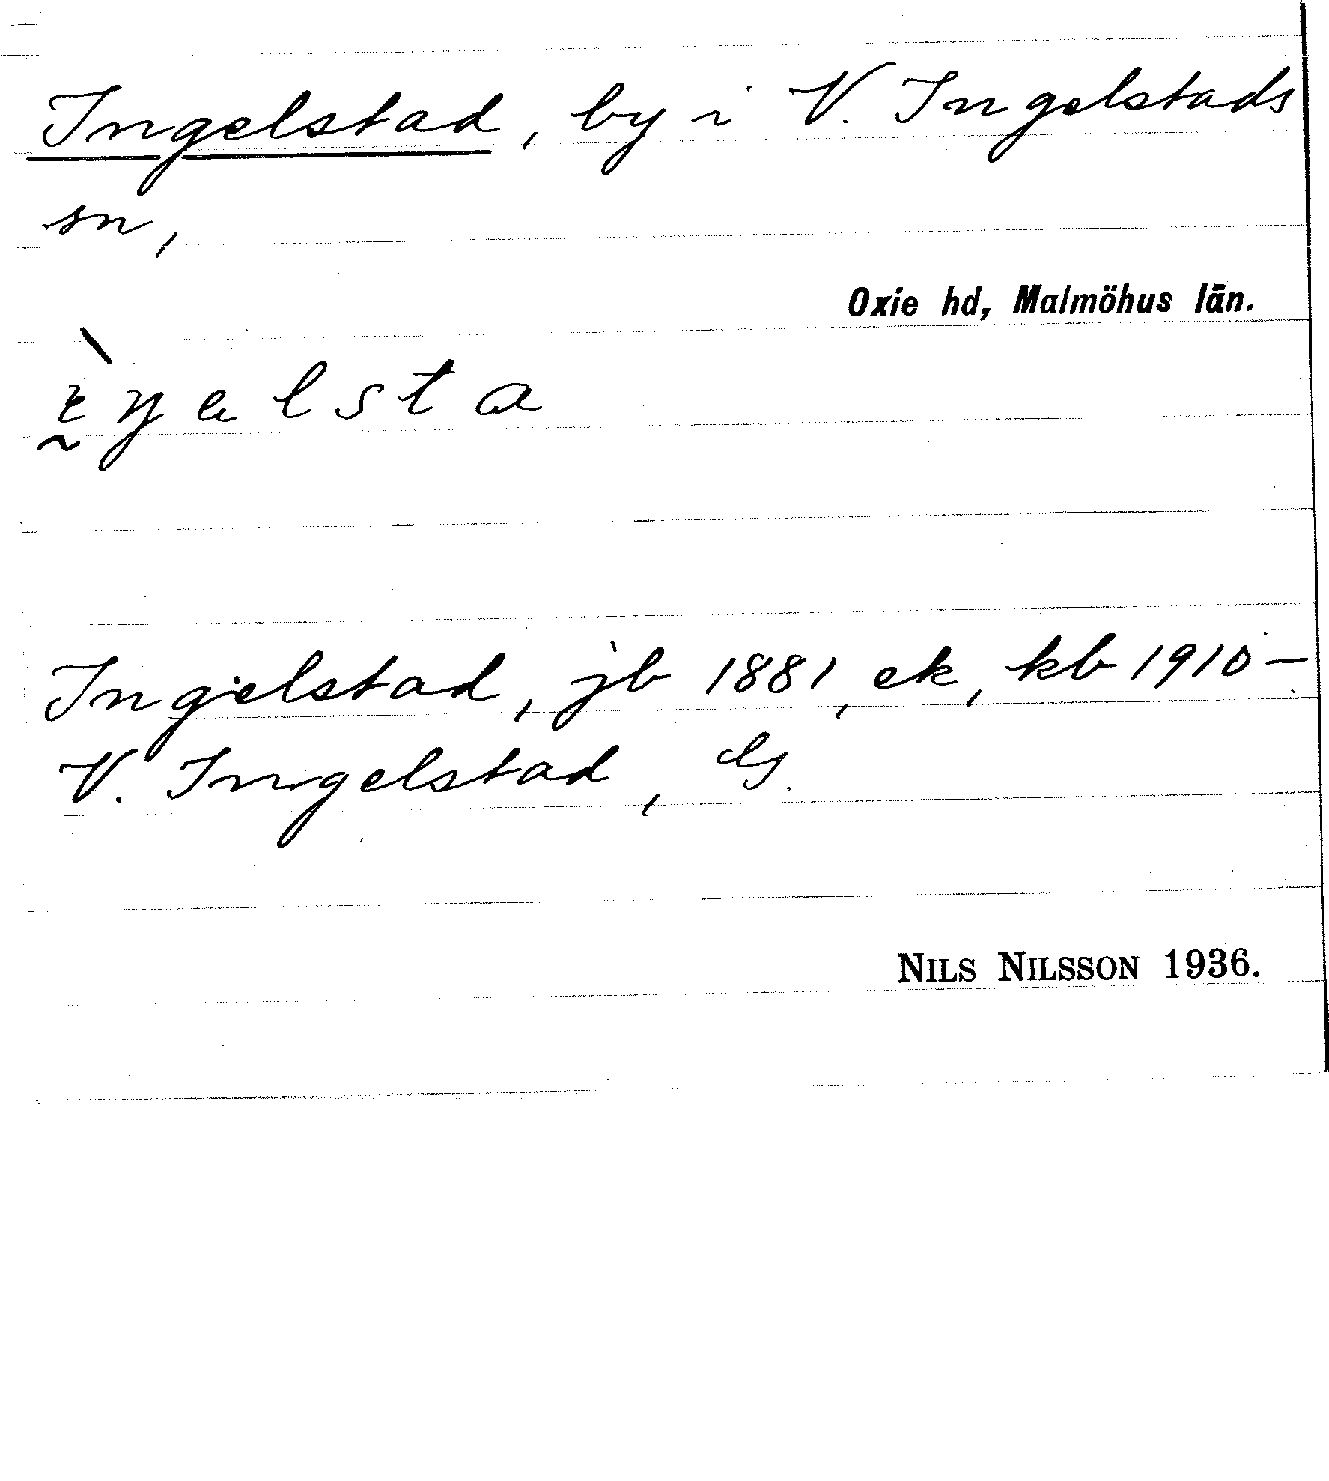 Ingelstad, by i V. Ingelstads
sn,
Oxie hd, Malmöhus län.
Ingelstad, jb 1881, ek, kb 1910–
V. Ingelstad, G.
NILS NILSSON 1936.